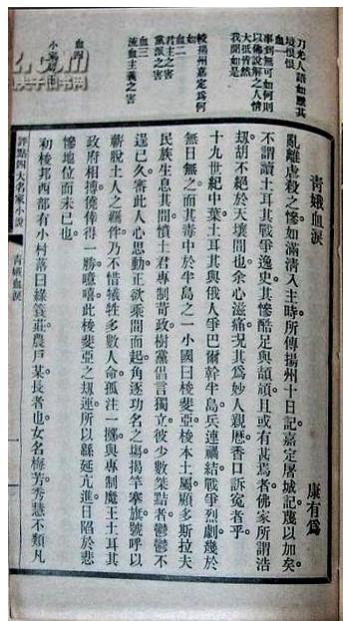 刀光人語如歷其
境恨恨
血一
事到無可如何則
以佛說解之人情
大抵皆然
我聞如是
較揚州嘉定為何
如
血二
君主之害
黨派之害
血三
流血主義之害
血
小
青娥血淚
康有為
亂離虐殺之慘如滿淸入主時所傳揚州十日記嘉定屠城記蔑以加矣
不謂讀土耳其戰爭逸史其慘酷足與頡頏且或有甚焉者佛家所謂浩
刼胡不絕於天壤間也余心滋痛況其為妙人親歷香口訴冤者乎
十九世紀中葉土耳其與俄人爭巴爾幹半島兵連禍結戰爭烈劇幾於
無日無之而其毒中於半島之一小國曰梭斐亞梭本土屬顯多斯拉夫
民族生息其間憤土君專制苛政樹黨倡言獨立彼少數桀黠者鬱鬱不
逞已久審此人心思動正欲乘間而起角逐功名之塲揭竿搴旗號呼以
蘄脫土人之羈件乃不惜犧牲多數人命孤注一擲與專制魔王土耳其
政府相搏倖得一勝噫嘻此梭斐亞之刼連所以緜延亢進日陷於悲
慘地位而未已也
初梭邦西部有小村落曰綠簑莊農戶某長者也女名梅芳秀慧不類凡
評點四大名家小說
青娥血淚
一